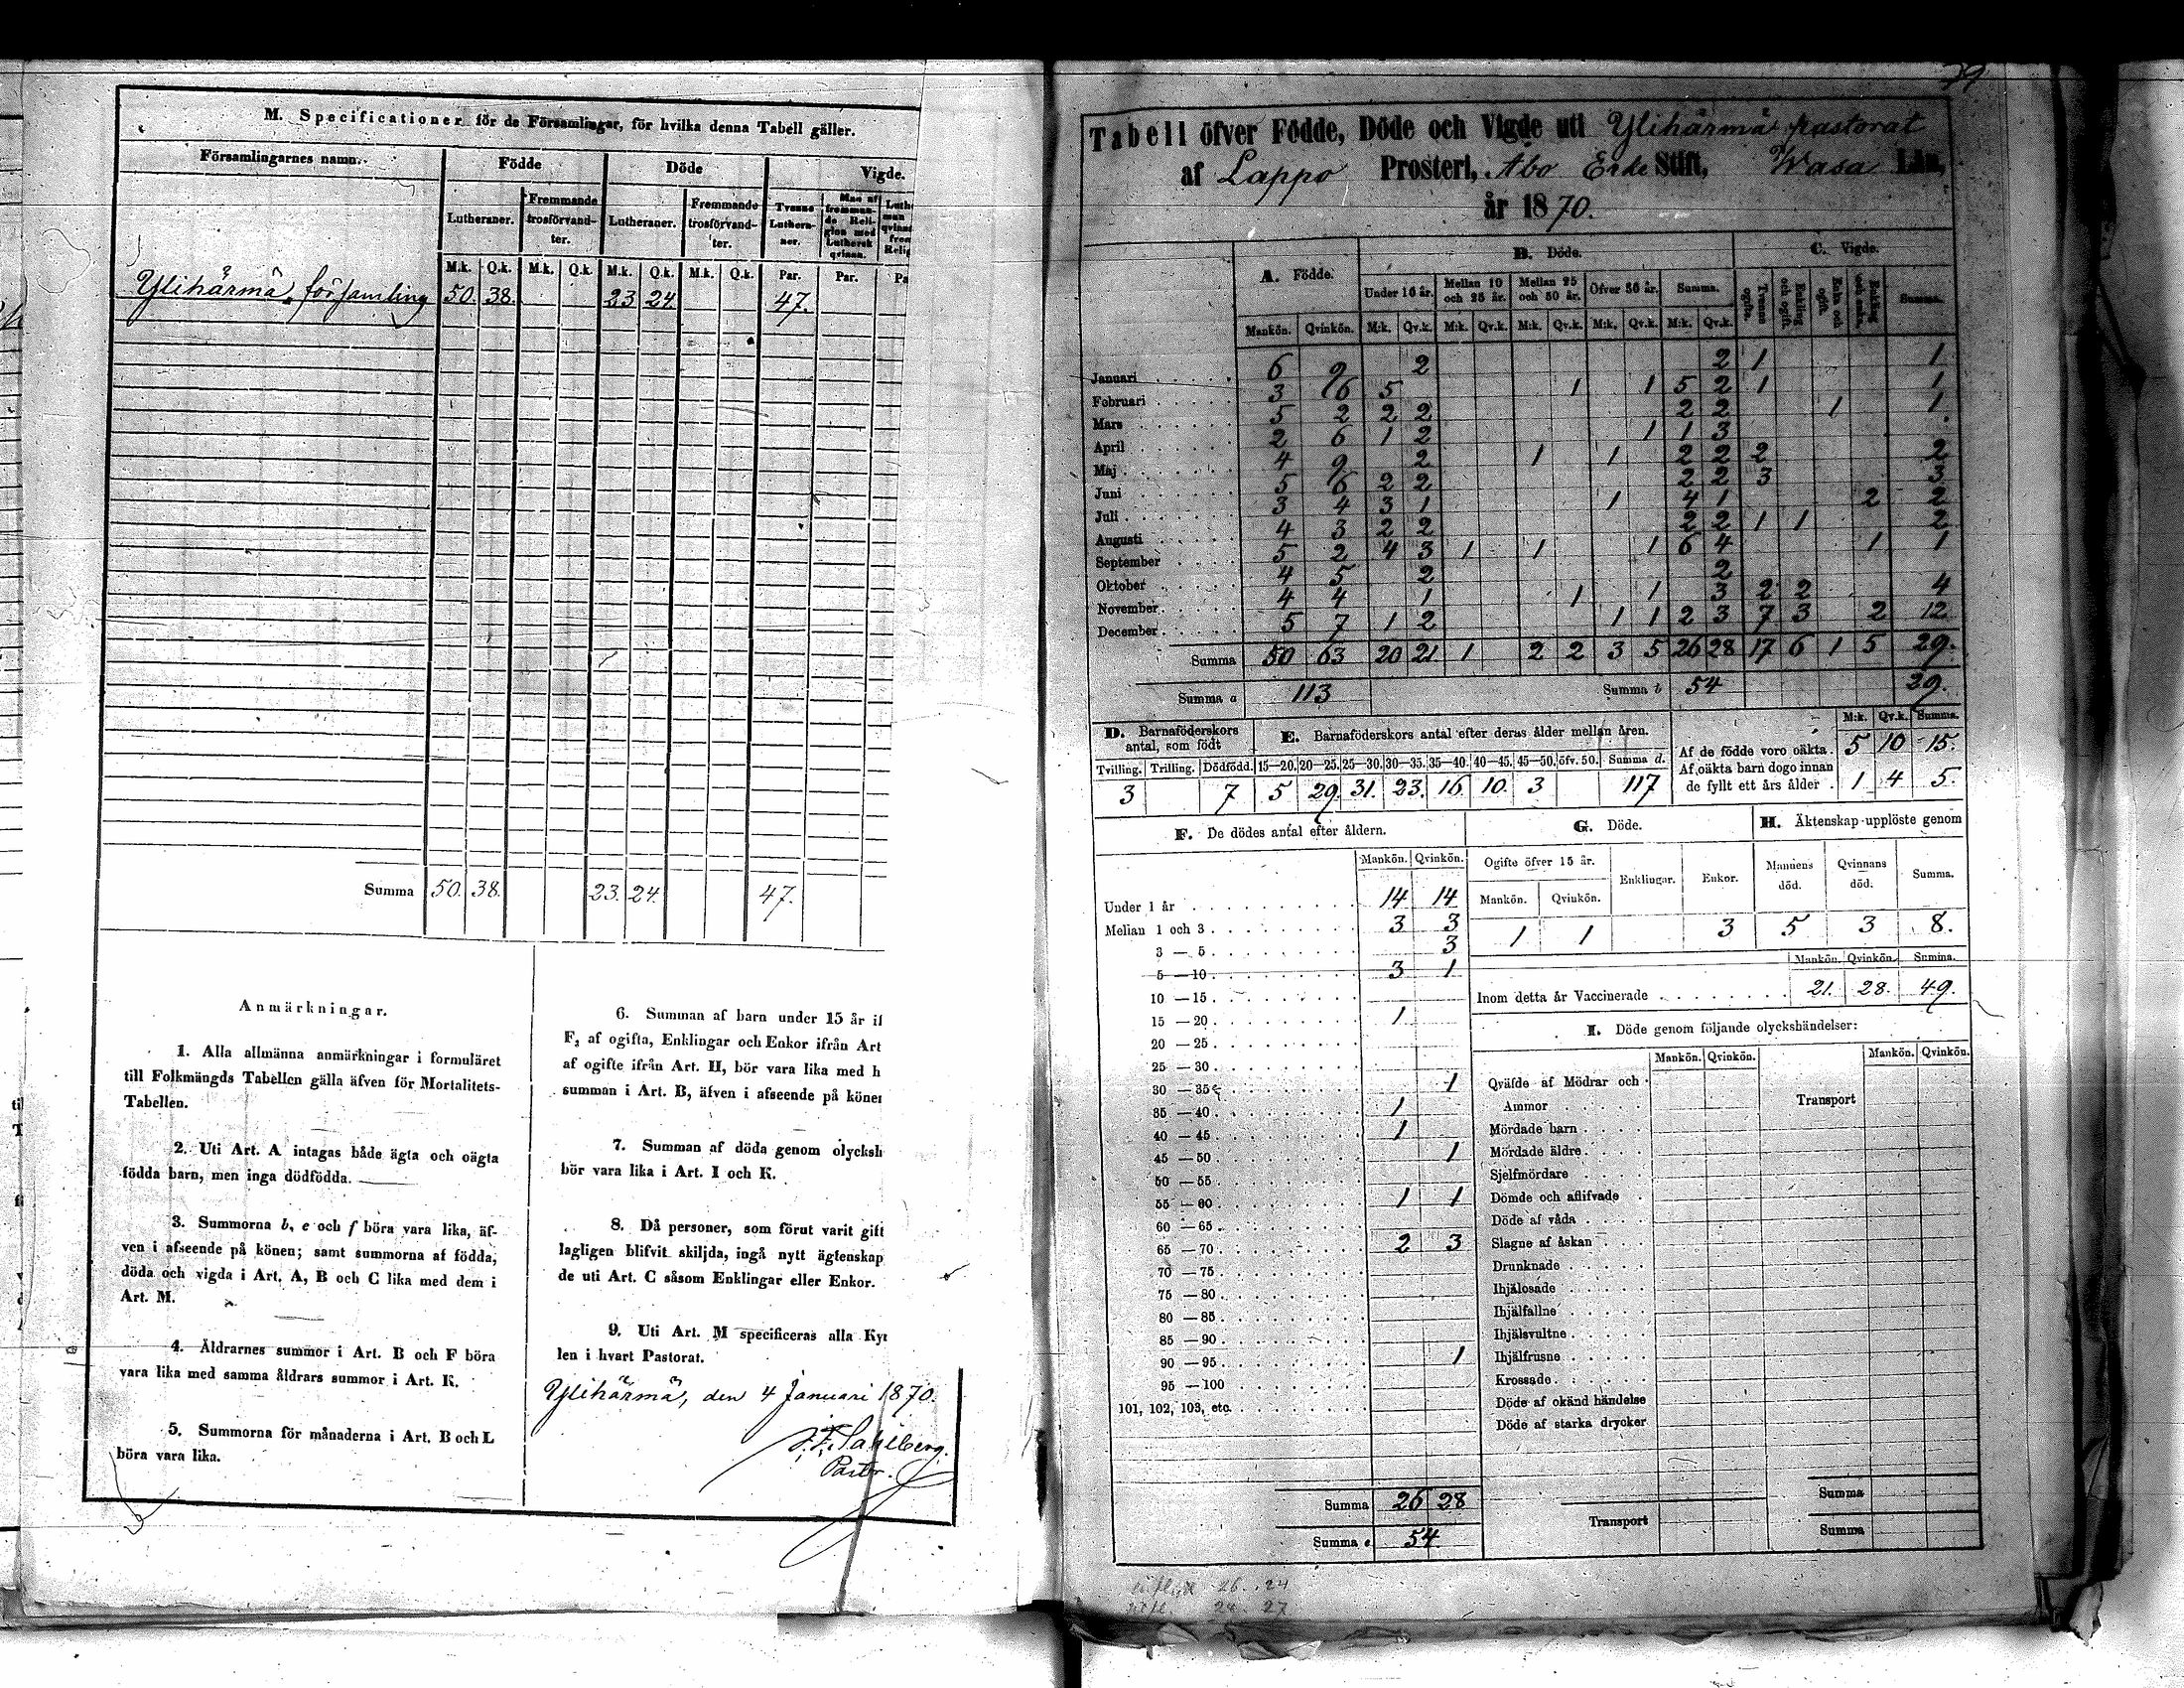 M. Specificationer för de Församlingar, för hvilka denna Tabell gäller.
Församlingarnes namn. Födde Döde Vigde.
Lutheraner. Fremmande trosförvandter. Lutheraner. Fremmande trosförvandter. Tvenne Lutheraner. Man af fremmande Religion med Luthersk qvinna.
M.k. Q.k. M.k. Q.k. M.k. Q.k. M.k. Q.k. Par. Par. Pa
Ylihärmä församling 50. 38. 23 24. 47.
Summa 50. 38. 23. 24. 47.
Anmärkningar.
1. Alla allmänna anmärkningar i formuläret
till Folkmängds Tabellen gälla äfven för Mortalitets-
Tabellen.
2. Uti Art. A intagas både ägta och oägta
födda barn, men inga dödfödda.
3. Summorna b, e och f böra vara lika, äf-
ven i afseende på könen; samt summorna af födda,
döda och vigda i Art. A, B och C lika med dem i
Art. M.
4. Åldrarnes summor i Art. B och F böra
vara lika med samma åldrars summor i Art. K.
5. Summorna för månaderna i Art. B och L
böra vara lika.
6. Summan af barn under 15 år if
F, af ogifta, Enklingar och Enkor ifrån Art
af ogifte ifrån Art. H, bör vara lika med h
summan i Art. B, äfven i afseende på könen
7. Summan af döda genom olycksh
bör vara lika i Art. I och K.
8. Då personer, som förut varit gift
lagligen blifvit skiljda, ingå nytt ägtenskap
de uti Art. C såsom Enklingar eller Enkor.
9. Uti Art. M specificeras alla Kyr
len i hvart Pastorat.
Ylihärmä, den 4 Januari 1870.
J. F. Sahlberg.
Pastor.
79
Tabell öfver Födde, Döde och Vigde uti Ylihärmä pastorat
af Lappo Prosteri, Åbo Erke Stift, Wasa Län,
år 1870.
A. Födde. B. Döde. C. Vigde.
Under 10 år. Mellan 10 och 25 år. Mellan 25 och 50 år. Öfver 50 år. Summa. Tvenne ogifte. Enkling och ogift. Enka och ogift. Enkling och enka. Summa.
Mankön. Qvinkön. M:k. Qv.k. M:k. Qv.k. M:k. Qv.k. M:k. Qv.k. M:k. Qv.k.
Januari 6 9 2 2 1 1
Februari 3 6 5 1 1 5 2 1 1
Mars 5 2 2 2 2 2 1 1
April 2 6 1 2 1 1 3
Maj 4 9 2 1 1 2 2 2 2
Juni 5 6 2 2 2 2 3 3
Juli 3 4 3 1 1 4 1 2 2
Augusti 4 3 2 2 2 2 1 1 2
September 5 2 4 3 1 1 1 6 4 1 1
Oktober 4 5 2 2
November 4 4 1 1 1 3 2 2 4
December 5 7 1 2 1 1 2 3 7 3 2 12
Summa 50 63 20 21 1 2 2 3 5 26 28 17 6 1 5 29.
Summa a 113 Summa b 54 29.
D. Barnaföderskors antal, som födt
Tvilling. Trilling. Dödfödd.
3 7
E. Barnaföderskors antal efter deras ålder mellan åren.
15—20. 20—25. 25—30. 30—35. 35—40. 40—45. 45—50. öfv. 50. Summa d.
5 29. 31. 23. 16. 10. 3 117
M:k. Qv.k. Summa.
Af de födde voro oäkta. 5 10 15.
Af oäkta barn dogo innan
de fyllt ett års ålder. 1 4 5.
F. De dödes antal efter åldern.
Mankön. Qvinkön.
Under 1 år 14 14
Mellan 1 och 3 3 3
3 — 5 3
5 — 10 3 1
10 — 15
15 — 20 1
20 — 25
25 — 30
30 — 35 1
35 — 40 1
40 — 45 1
45 — 50 1
50 — 55
55 — 60 1 1
60 — 65
65 — 70 2 3
70 — 75
75 — 80
80 — 85
85 — 90
90 — 95 1
95 — 100
101, 102, 103, etc.
Summa 26 28
Summa e 54
G. Döde.
Ogifte öfver 15 år. Enklingar. Enkor.
Mankön. Qvinkön.
1 1 3
H. Äktenskap upplöste genom
Mannens död. Qvinnans död. Summa.
5 3 8.
Mankön. Qvinkön. Summa.
Inom detta år Vaccinerade 21. 28. 49.
I. Döde genom följande olyckshändelser:
Mankön. Qvinkön. Mankön. Qvinkön.
Qväfde af Mödrar och
Ammor Transport
Mördade barn
Mördade äldre
Sjelfmördare
Dömde och aflifvade
Döde af våda
Slagne af åskan
Drunknade
Ihjälosade
Ihjälfallne
Ihjälsvultne
Ihjälfrusne
Krossade
Döde af okänd händelse
Döde af starka drycker
Summa
Transport Summa
26. 24
24 27